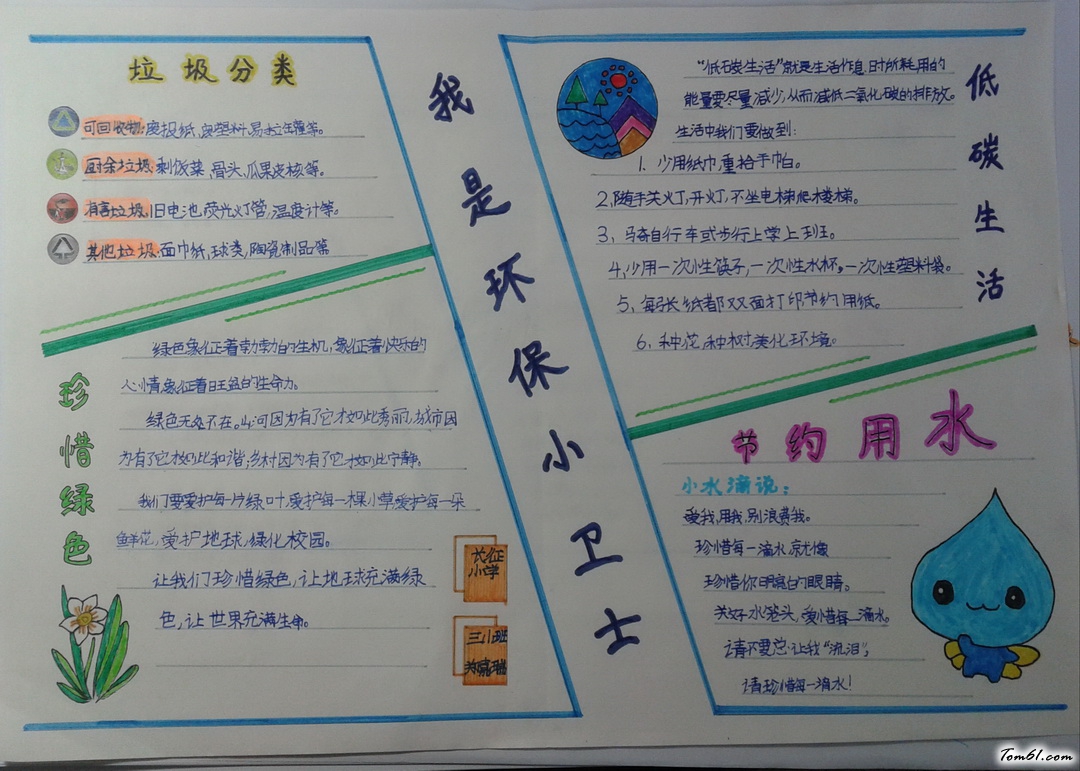 垃圾分类
可回收物:废报纸,废塑料,易拉罐等。
厨余垃圾:剩饭菜,骨头,瓜果皮核等。
有害垃圾:旧电池,荧光灯管,温度计等。
其他垃圾:面巾纸,球类,陶瓷制品等
珍惜绿色
绿色象征着勃勃的生机,象征着快乐的
心情,象征着旺盛的生命力。
绿色无处不在。山河因为有了它才如此秀丽,城市因
为有了它才如此和谐;乡村因为有了它才如此宁静。
我们要爱护每一片绿叶,爱护每一棵小草,爱护每一朵
鲜花,爱护地球,绿化校园。
让我们珍惜绿色,让地球充满绿
色,让世界充满生命。
长征
小学
三小班
我是环保小卫士
低碳生活
“低碳生活”就是生活作息时所耗用的
能量要尽量减少,从而减低二氧化碳的排放。
生活中我们要做到:
1. 少用纸巾,重拾手帕。
2,随手关灯,开灯,不坐电梯爬楼梯。
3, 骑自行车或步行上学上班。
4,少用一次性筷子,一次性水杯,一次性塑料袋。
5, 每张纸都双面打印节约用纸。
6, 种花,种树,美化环境。
节约用水
小水滴说:
爱我,用我,别浪费我。
珍惜每一滴水就像
珍惜你明亮的眼睛。
关好水笼头,爱惜每一滴水。
请不要总让我“流泪”;
请珍惜每一滴水!
Tom61.com